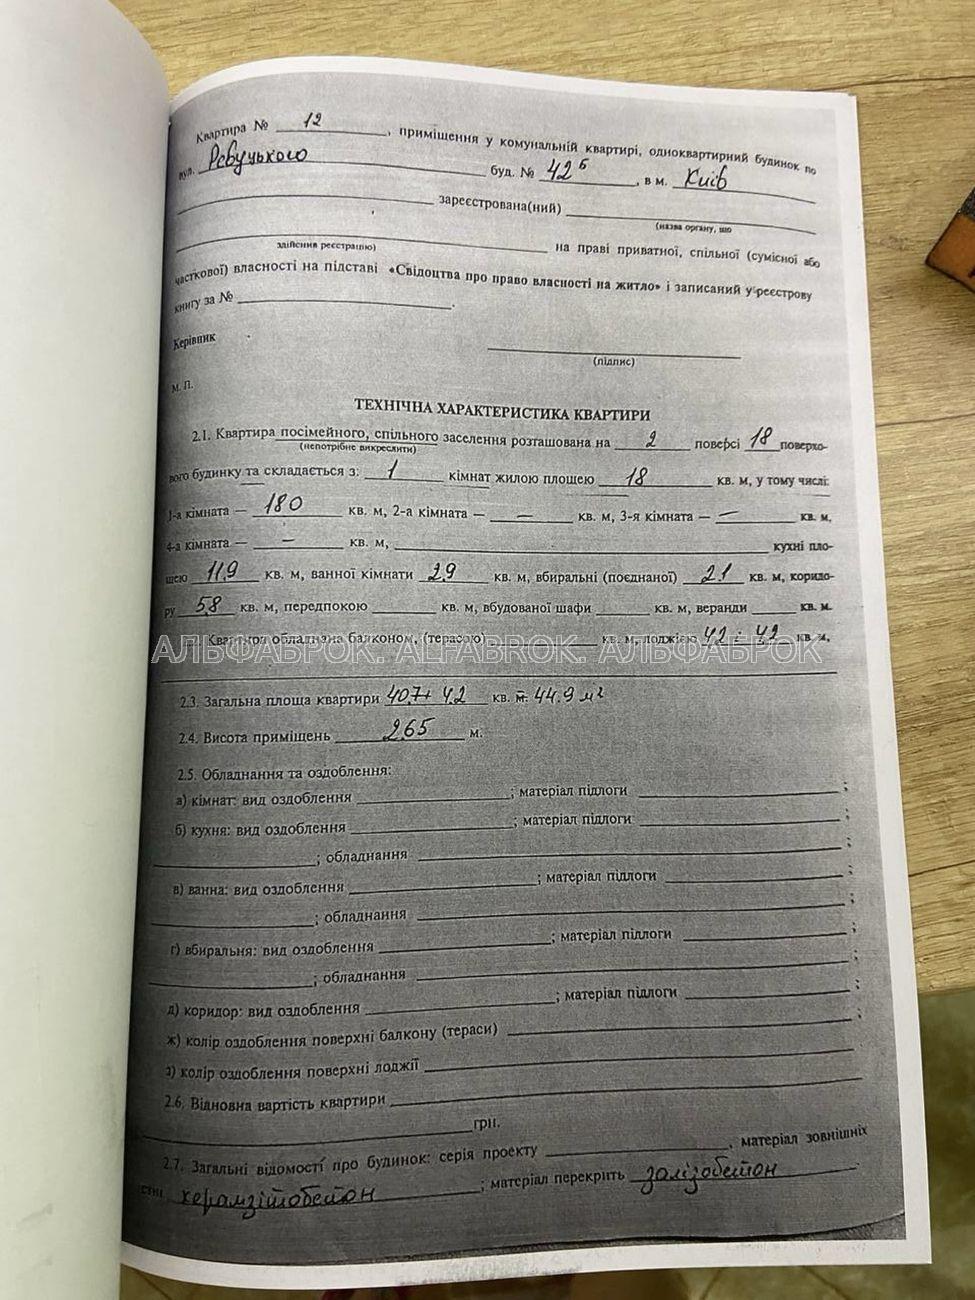 Квартира № 12, приміщення у комунальній квартирі, одноквартирний будинок по
вул. Ревуцького буд. № 42б, в м. Київ
зареєстрована(ний)
(назва органу, що
здійснив реєстрацію) на праві приватної, спільної (сумісної або
часткової) власності на підставі «Свідоцтва про право власності на житло» і записаний у реєстрову
книгу за № .
Керівник
(підпис)
М. П.
ТЕХНІЧНА ХАРАКТЕРИСТИКА КВАРТИРИ
2.1. Квартира посімейного, спільного заселення розташована на 2 поверсі 18 поверхо-
(непотрібне викреслити)
вого будинку та складається з: 1 кімнат жилою площею 18 кв. м, у тому числі:
1-а кімната — 180 кв. м, 2-а кімната — — кв. м, 3-я кімната — — кв. м,
4-а кімната — — кв. м, кухні пло-
щею 11.9 кв. м, ванної кімнати 2.9 кв. м, вбиральні (поєднаної) 2.1 кв. м, коридо-
ру 5.8 кв. м, передпокою кв. м, вбудованої шафи кв. м, веранди кв. м.
Квартира обладнана балконом, (терасою) кв. м, лоджією 4.2 ÷ 4.2 кв м,
АЛЬФАБРОК. ALFABROK. АЛЬФАБРОК
2.3. Загальна площа квартири 40.7+ 4.2 кв. м. 44.9 м²
2.4. Висота приміщень 2.65 м.
2.5. Обладнання та оздоблення:
а) кімнат: вид оздоблення ; матеріал підлоги ;
б) кухня: вид оздоблення ; матеріал підлоги ;
; обладнання ;
в) ванна: вид оздоблення ; матеріал підлоги ;
; обладнання ;
г) вбиральня: вид оздоблення ; матеріал підлоги ;
; обладнання ;
д) коридор: вид оздоблення ; матеріал підлоги ;
ж) колір оздоблення поверхні балкону (тераси) ;
з) колір оздоблення поверхні лоджії
2.6. Відновна вартість квартири
грн.
2.7. Загальні відомості про будинок: серія проекту , матеріал зовнішніх
стін керамзітобетон ; матеріал перекрить залізобетон .